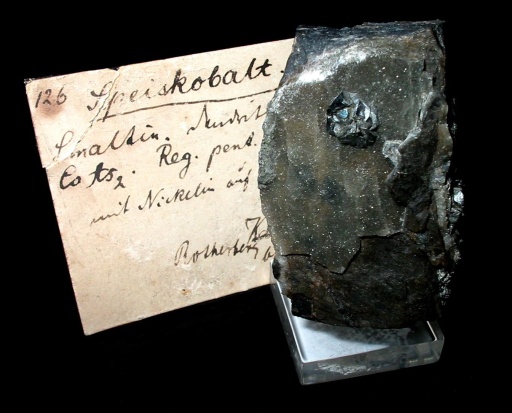 126 Speiskobalt.
Smaltin.
Co As₂. Reg. pent.
mit Nickelin auf
Rotherberg